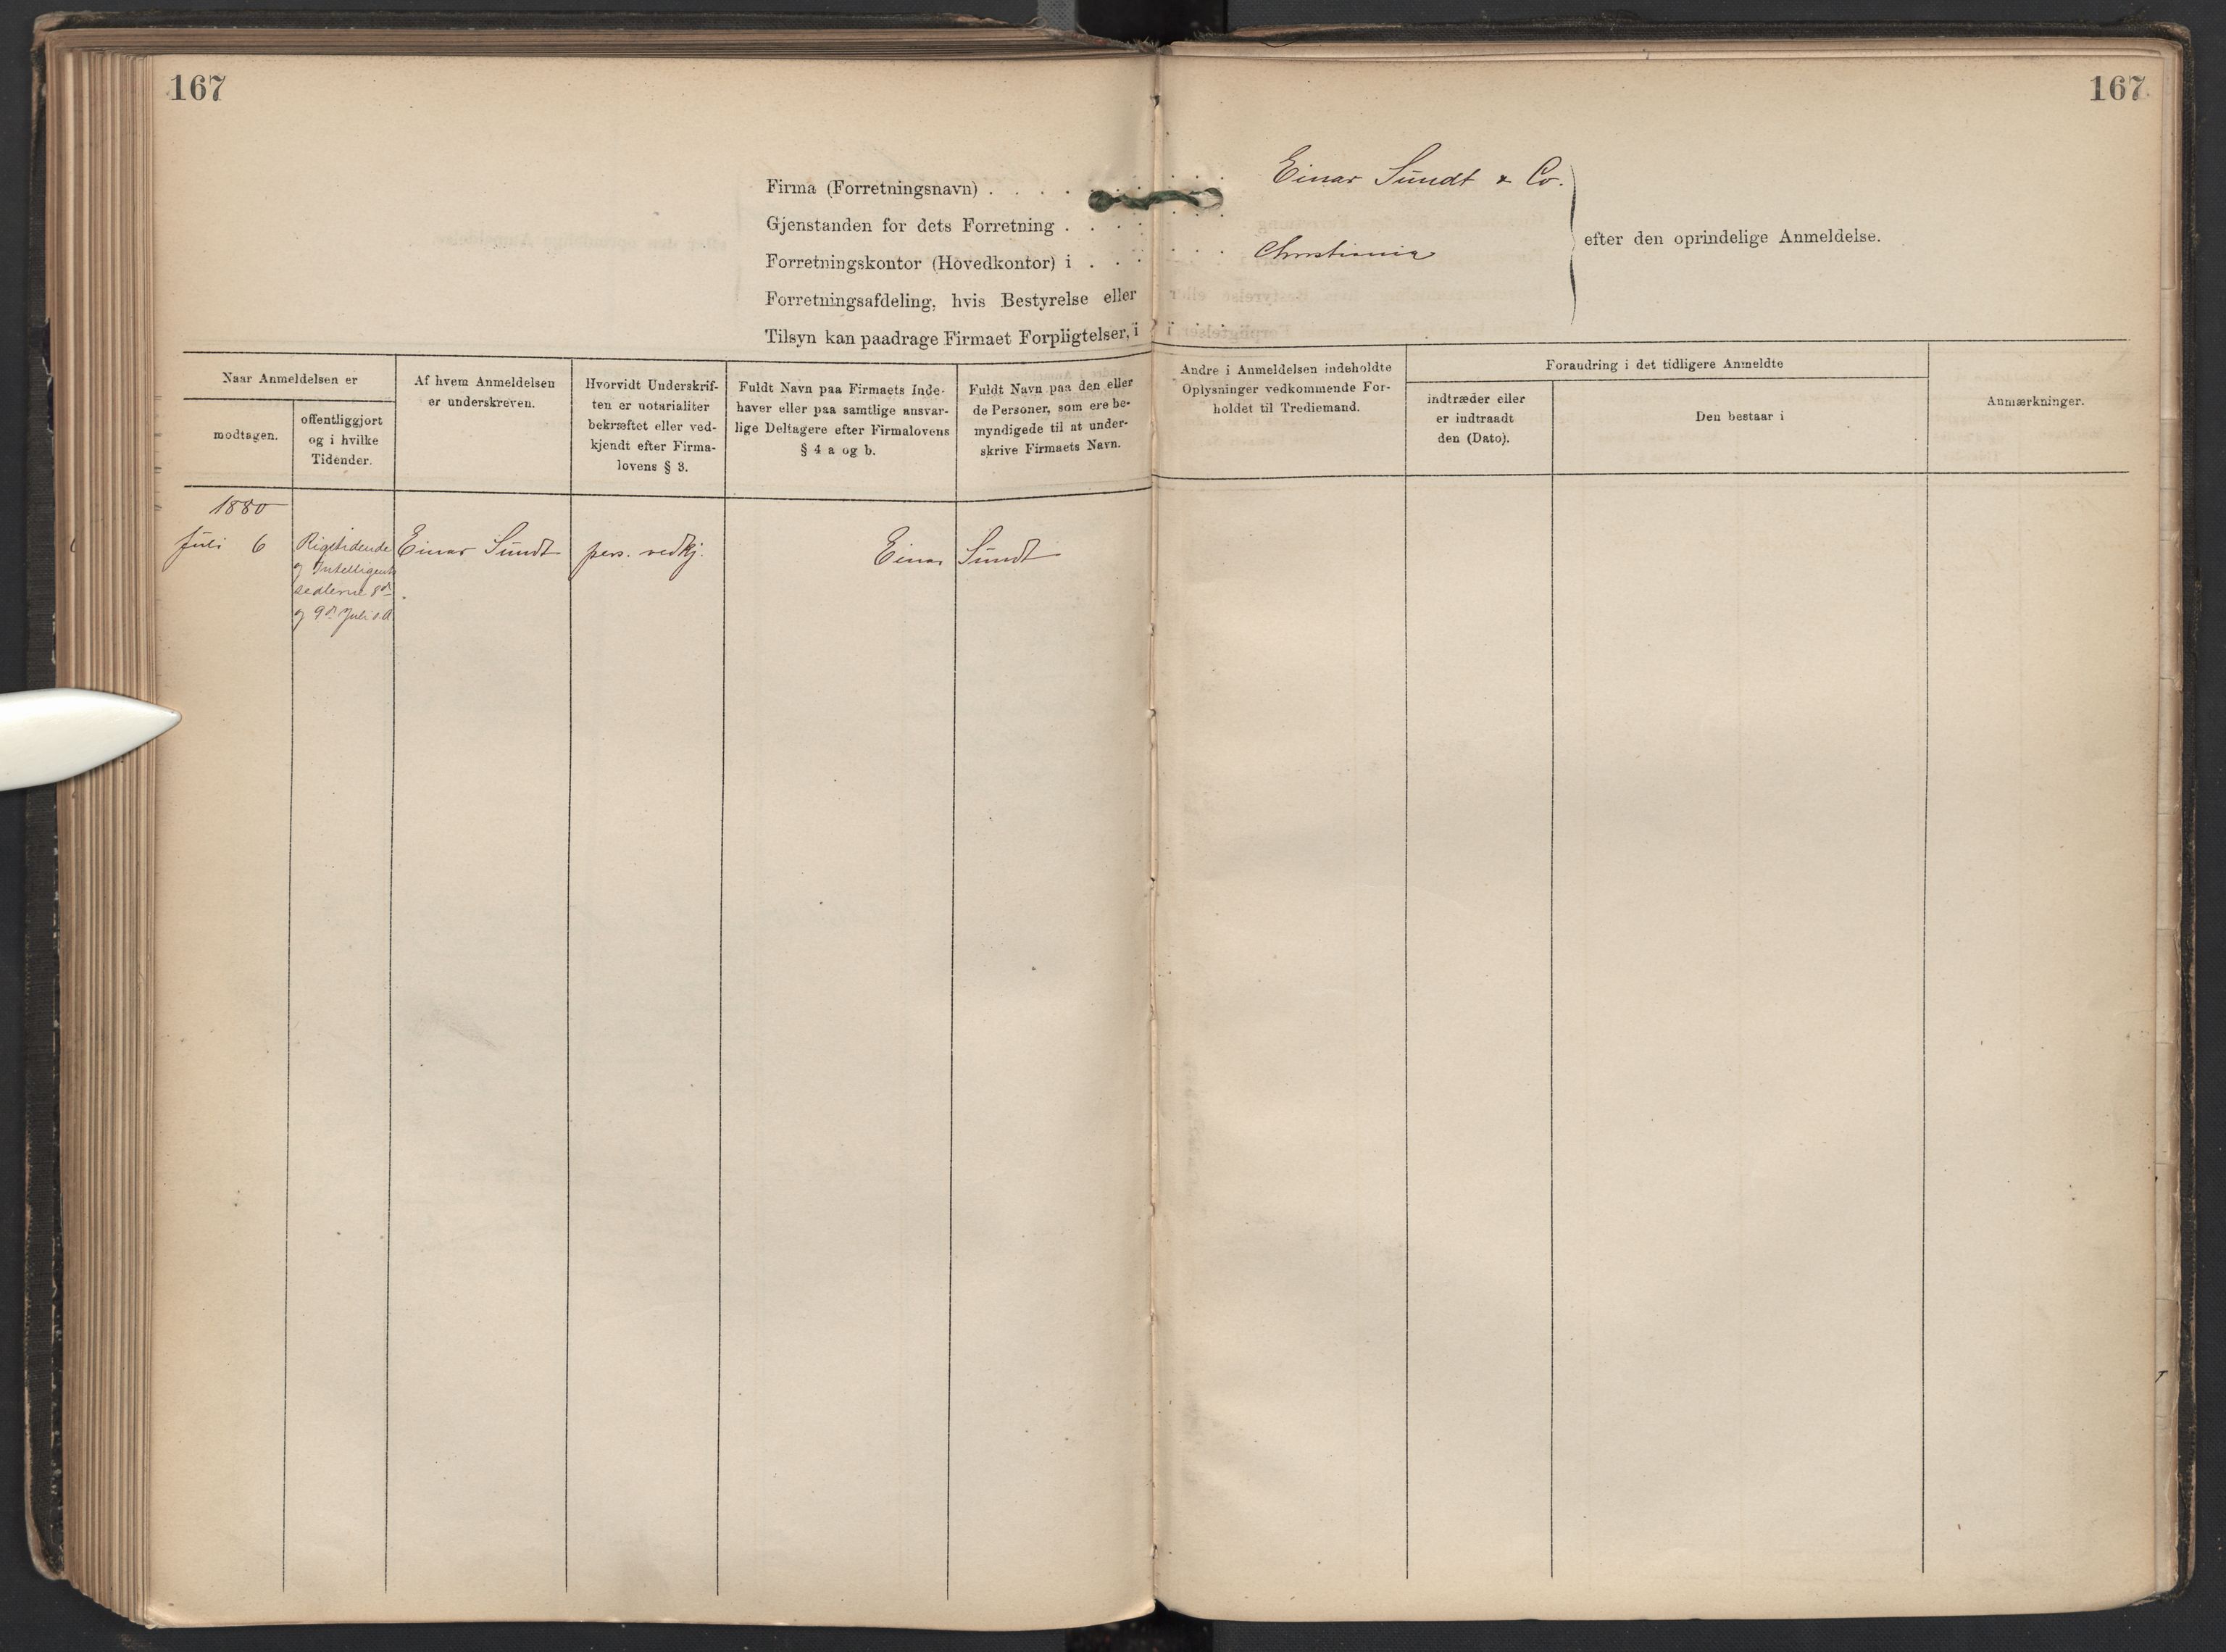 167
167
Firma (Forretningsnavn) . . . . Einar Sundt & Co.
Gjenstanden for dets Forretning . . . .
Forretningskontor (Hovedkontor) i . . . . . . Christiania
Forretningsafdeling, hvis Bestyrelse eller
Tilsyn kan paadrage Firmaet Forpligtelser, i
efter den oprindelige Anmeldelse.
Naar Anmeldelsen er
modtagen.
offentliggjort
og i hvilke
Tidender.
Af hvem Anmeldelsen
er underskreven.
Hvorvidt Underskrif-
ten er notarialiter
bekræftet eller ved-
kjendt efter Firma-
lovens § 3.
Fuldt Navn paa Firmaets Inde-
haver eller paa samtlige ansvar-
lige Deltagere efter Firmalovens
§ 4 a og b.
Fuldt Navn paa den eller
de Personer, som ere be-
myndigede til at under-
skrive Firmaets Navn.
Andre i Anmeldelsen indeholdte
Oplysninger vedkommende For-
holdet til Trediemand.
Forandring i det tidligere Anmeldte
indtræder eller
er indtraadt
den (Dato).
Den bestaar i
Anmærkninger.
1880
Juli 6
Rigstidende
og Intelligents
sedlerne 8de
og 9de Juli s.A.
Einar Sundt
pers. vedkj.
Einar Sundt